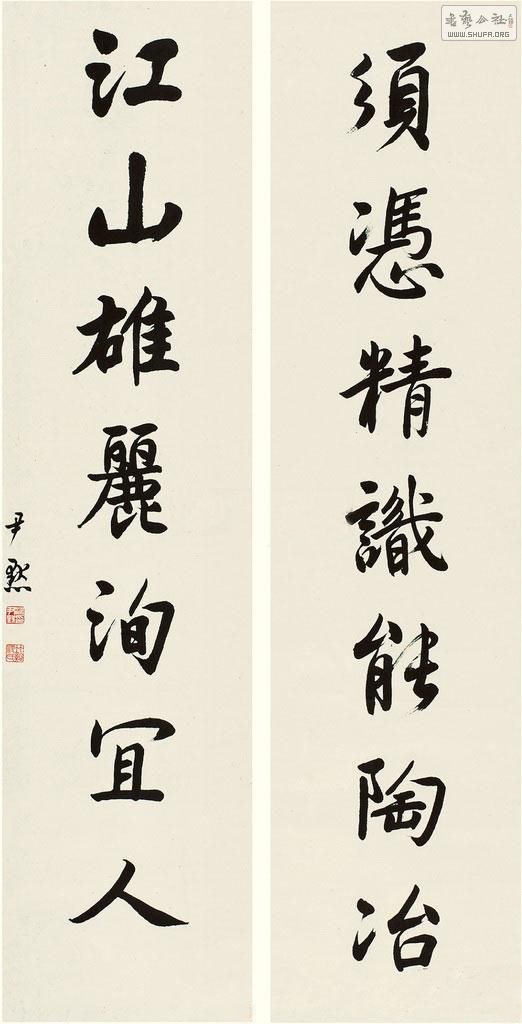 須憑精識能陶冶
江山雄麗洵宜人
尹默
書藝公社
WWW.SHUFA.ORG